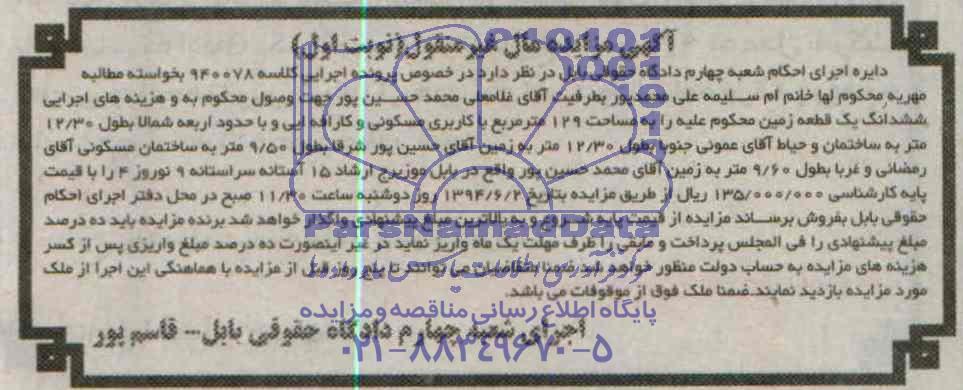 آگهی مزایده مال غیر منقول (نوبت اول)
دایره اجرای احکام شعبه چهارم دادگاه حقوقی بابل در نظر دارد در خصوص پرونده اجرایی کلاسه ۹۴۰۰۷۸ بخواسته مطالبه
مهریه محکوم لها خانم ام سلیمه علی محمدپور بطرفیت آقای غلامعلی محمد حسین پور جهت وصول محکوم به و هزینه های اجرایی
ششدانگ یک قطعه زمین محکوم علیه را به مساحت ۱۲۹ مترمربع با کاربری مسکونی و کارافه ایی و با حدود اربعه شمالا بطول ۱۲/۳۰
متر به ساختمان و حیاط آقای عمونی جنوبا بطول ۱۲/۳۰ متر به زمین آقای حسین پور شرقا بطول ۹/۵۰ متر به ساختمان مسکونی آقای
رمضانی و غربا بطول ۹/۶۰ متر به زمین آقای محمد حسین پور واقع در بابل موزیرج ارشاد ۱۵ آستانه سراستانه ۹ نوروز ۴ را با قیمت
پایه کارشناسی ۱۳۵/۰۰۰/۰۰۰ ریال از طریق مزایده بتاریخ ۱۳۹۴/۶/۲ روز دوشنبه ساعت ۱۱/۳۰ صبح در محل دفتر اجرای احکام
حقوقی بابل بفروش برساند مزایده از قیمت پایه شروع و به بالاترین مبلغ پیشنهادی واگذار خواهد شد برنده مزایده باید ده درصد
مبلغ پیشنهادی را فی المجلس پرداخت و مابقی را ظرف مهلت یک ماه واریز نماید در غیر اینصورت ده درصد مبلغ واریزی پس از کسر
هزینه های مزایده به حساب دولت منظور خواهد شد ضمنا متقاضیان می توانند تا پنج روز قبل از مزایده با هماهنگی این اجرا از ملک
مورد مزایده بازدید نمایند. ضمنا ملک فوق از موقوفات می باشد.
اجرای شعبه چهارم دادگاه حقوقی بابل - قاسم پور
ParsNamadData
پایگاه اطلاع رسانی مناقصه و مزایده
۰۲۱-۸۸۳۴۹۶۷۰-۵